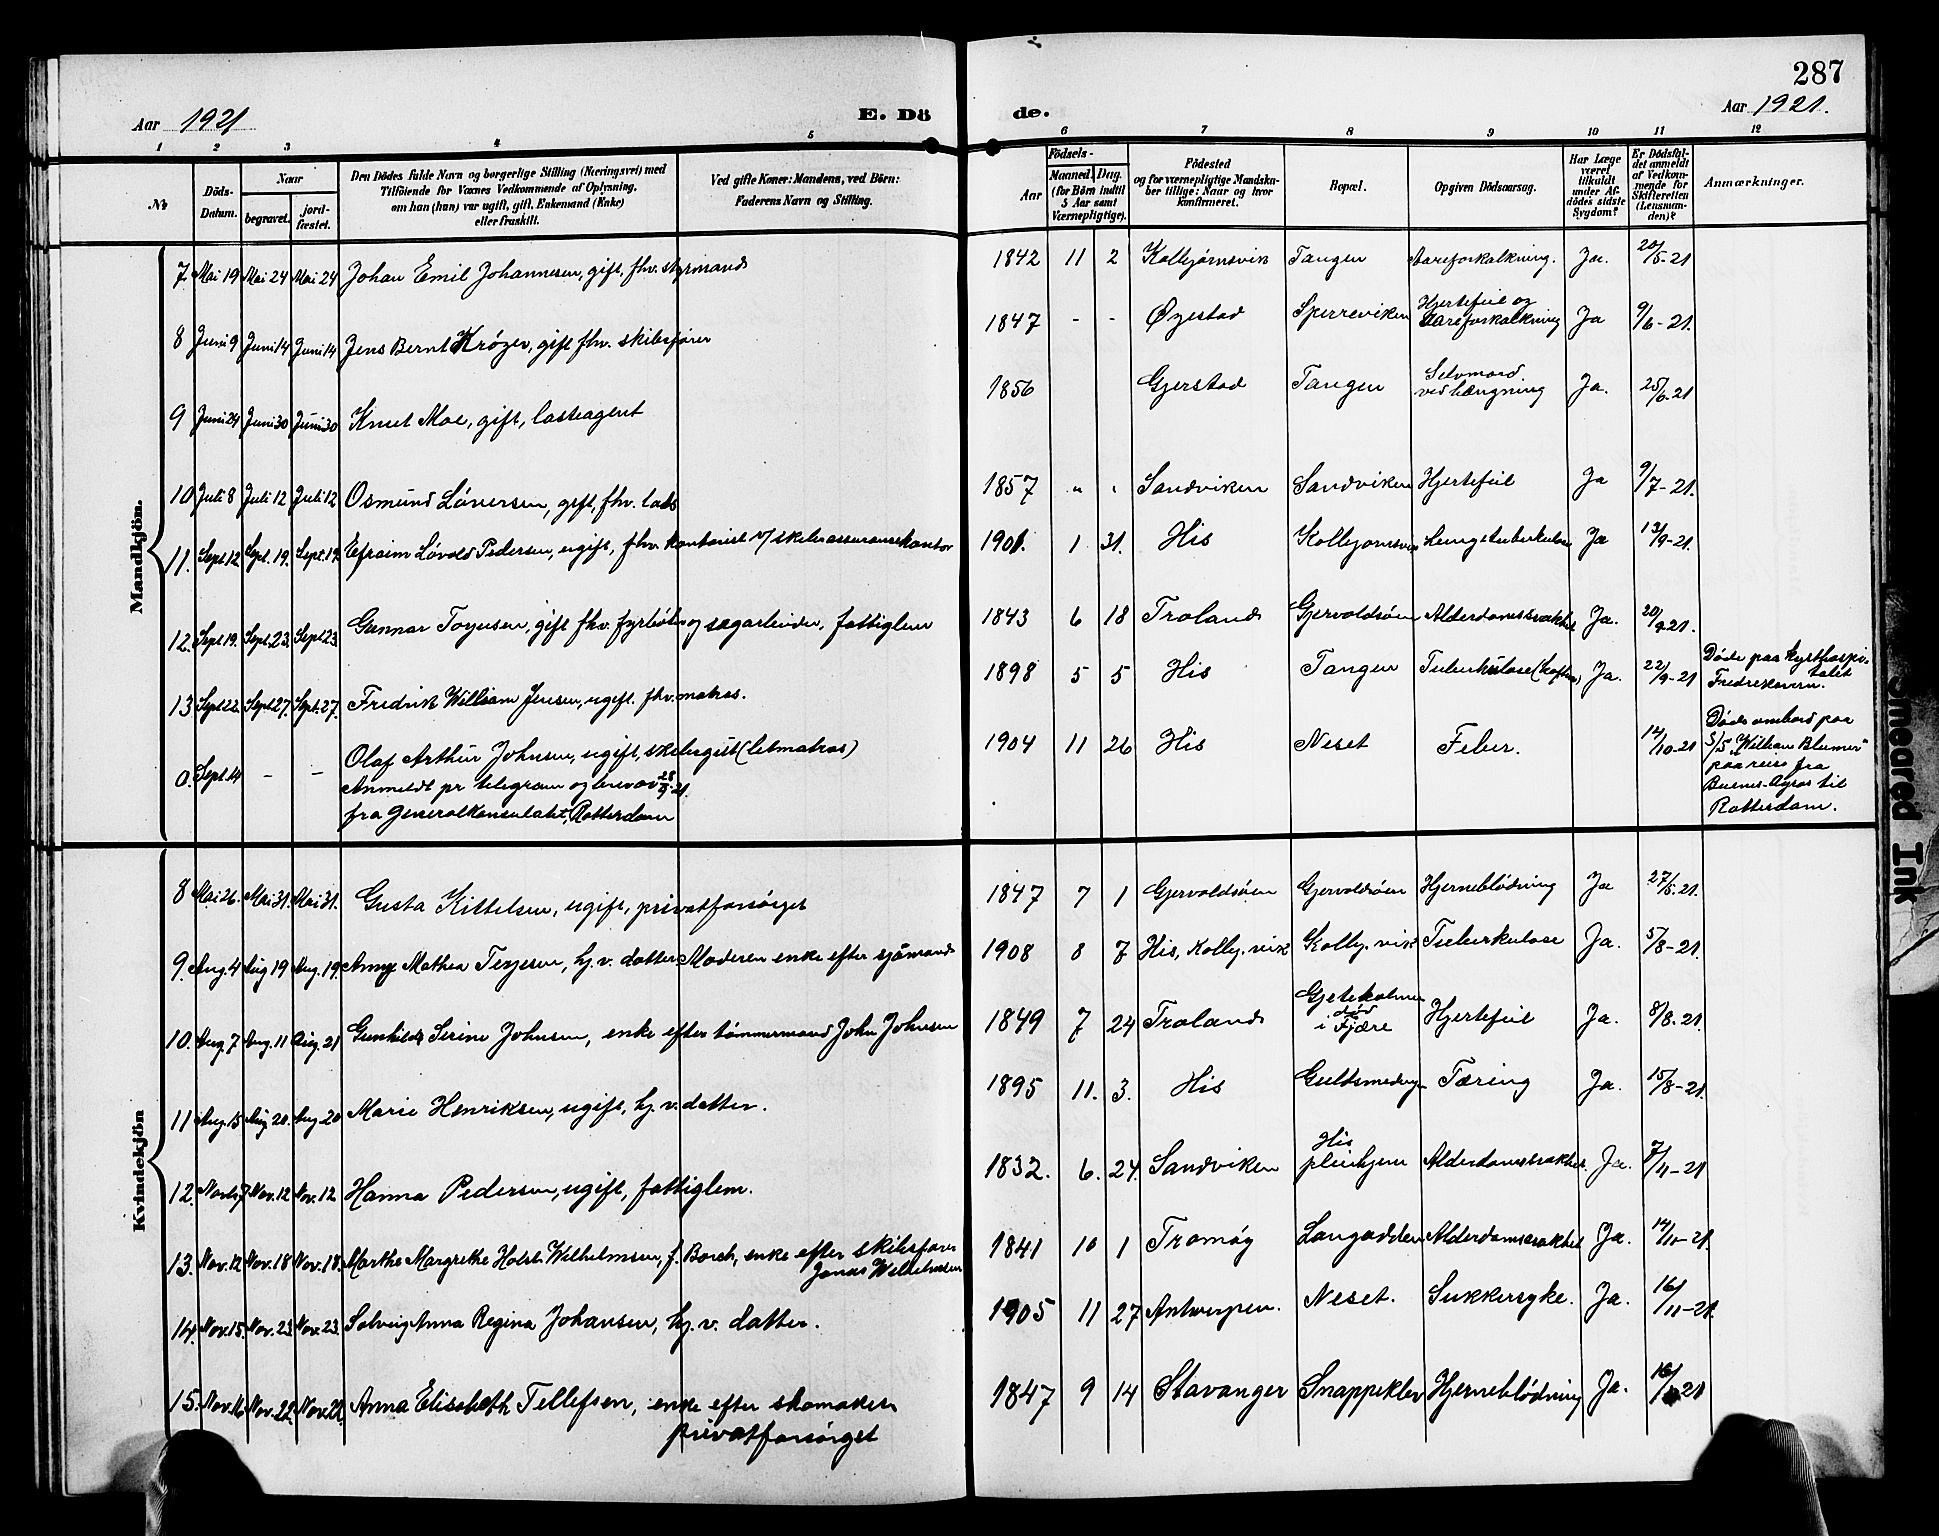 287
Aar 1921
E. Dö
de.
Aar 1921.
1 2 3 4 5 6 7 8 9 10 11 12
No
Döds-Datum.
Naar
begravet.
jordfæstet.
Den Dödes fulde Navn og borgerlige Stilling (Næringsvei) med
Tilföiende for Voxnes Vedkommende af Oplysning,
om han (hun) var ugift, gift, Enkemand (Enke)
eller fraskilt.
Ved gifte Koner: Mandens, ved Börn:
Faderens Navn og Stilling.
Födsels-
Aar
Maaned. Dag.
(for Börn indtil
5 Aar samt
Værnepligtige).
Födested
og for værnepligtige Mandskaber tillige: Naar og hvor
konfirmeret.
Bopæl.
Opgiven Dödsaarsag.
Har Læge
været
tilkaldt
under Afdödes sidste
Sygdom?
Er Dödsfaldet anmeldt
af Vedkommende for
Skifteretten
(Lensmanden)?
Anmærkninger.
Mandkjön.
7 Mai 19 Mai 24 Mai 24 Johan Emil Johannesen, gift, fhv. styrmand 1842 11 2 Kolbjørnsvik Tangen Aareforkalkning. Ja. 20/5-21
8 Juni 9 Juni 14 Juni 14 Jens Bernt Krøger, gift fhv. skibsfører 1847 - - Øyestad Sperreviken Hjertefeil og Aareforkalkning Ja 9/6-21.
9 Juni 24 Juni 30 Juni 30 Knut Moe, gift, lasteagent 1856 Gjerstad Tangen Selvmord ved hængning Ja. 25/6-21
10 Juli 8 Juli 12 Juli 12 Osmund Løversen, gift, fhv. lods 1857 " " Sandviken Sandviken Hjertefeil Ja 9/7-21.
11. Sept 12 Sept. 19. Sept. 19. Efraim Løvold Pedersen, ugift, fhv. kontorist v/ skibsassuransekontor 1901. 1 31. His Kolbjørnsvik Lungetuberkulose Ja 13/9-21.
12. Sept 19. Sept. 23. Sept 23 Gunnar Terjesen, gift fhv. fyrbøter og sagarbeider, fattiglem 1843 6 18 Froland Gjervoldsøen Alderdomssvakhet Ja. 20/9 21.
13 Sept 22. Sept 27. Sept. 27. Fredrik William Jensen, ugift. fhv. matros. 1898 5 5 His Tangen Tuberkulose (hoften) Ja. 22/9-21 Døde paa Kysthospitalet Fredriksvern.
0. Sept. 14 - - Olaf Arthur Johnsen, ugift, skibsgut (letmatros)
Anmeldt pr telegram og brev av 28/9-21.
fra Generalkonsulatet, Rotterdam
1904 11 26 His Neset Feber. 14/10-21 Døde ombord paa
S/S "William Blumer"
paa reise fra
Buenos-Ayres til
Rotterdam.
Kvindekjön
8 Mai 26. Mai 31. Mai 31. Gusta Kittelsen, ugift, privatforsørget 1847 7 1 Gjervoldsøen Gjervoldsøen Hjerneblödning Ja 27/5-21.
9. Aug. 4 Aug 19 Aug. 19. Anny Mathea Terjesen, hj. v. datter. Moderen enke efter sjømand 1908 8 7 His, Kolbj. vik Kolbj. vik Tuberkulose Ja. 5/8-21.
10. Aug. 7 Aug. 11 Aug. 21 Gunhild Serine Johnsen, enke efter tømmermand John Johnsen 1849 7 24 Froland Gjeteholmen död i Fjære Hjertefeil Ja. 8/8-21.
11 Aug. 15 Aug 20. Aug 20 Marie Henriksen, ugift, hj. v. datter. 1895 11. 3. His Guldsmedeng Tæring Ja. 15/8-21.
12. Nov. 7 Nov. 12 Nov. 12. Hanna Pedersen, ugift, fattiglem. 1832. 6. 24. Sandviken His pleiehjem Alderdomssvakhet. Ja. 8/11-21
13. Nov. 12 Nov. 18 Nov. 18. Marthe Margrethe Holst Wilhelmsen, f. Borch, enke efter skibsfører Jonas Wilhelmsen 1841 10 1 Tromøy Langodden Alderdomssvakhet Ja. 14/11-21.
14. Nov. 15. Nov. 23. Nov. 23. Solveig Anna Regina Johansen, hj. v. datter. 1905 11 27 Antwerpen. Neset. Sukkersyke. Ja. 16/11-21.
15. Nov. 16 Nov. 22. Nov. 22. Anna Elisabeth Tellefsen, enke efter skomaker,
privatforsörget
1847 9 14 Stavanger Snappeklev Hjerneblödning Ja. 16/11 21
Smeared Ink